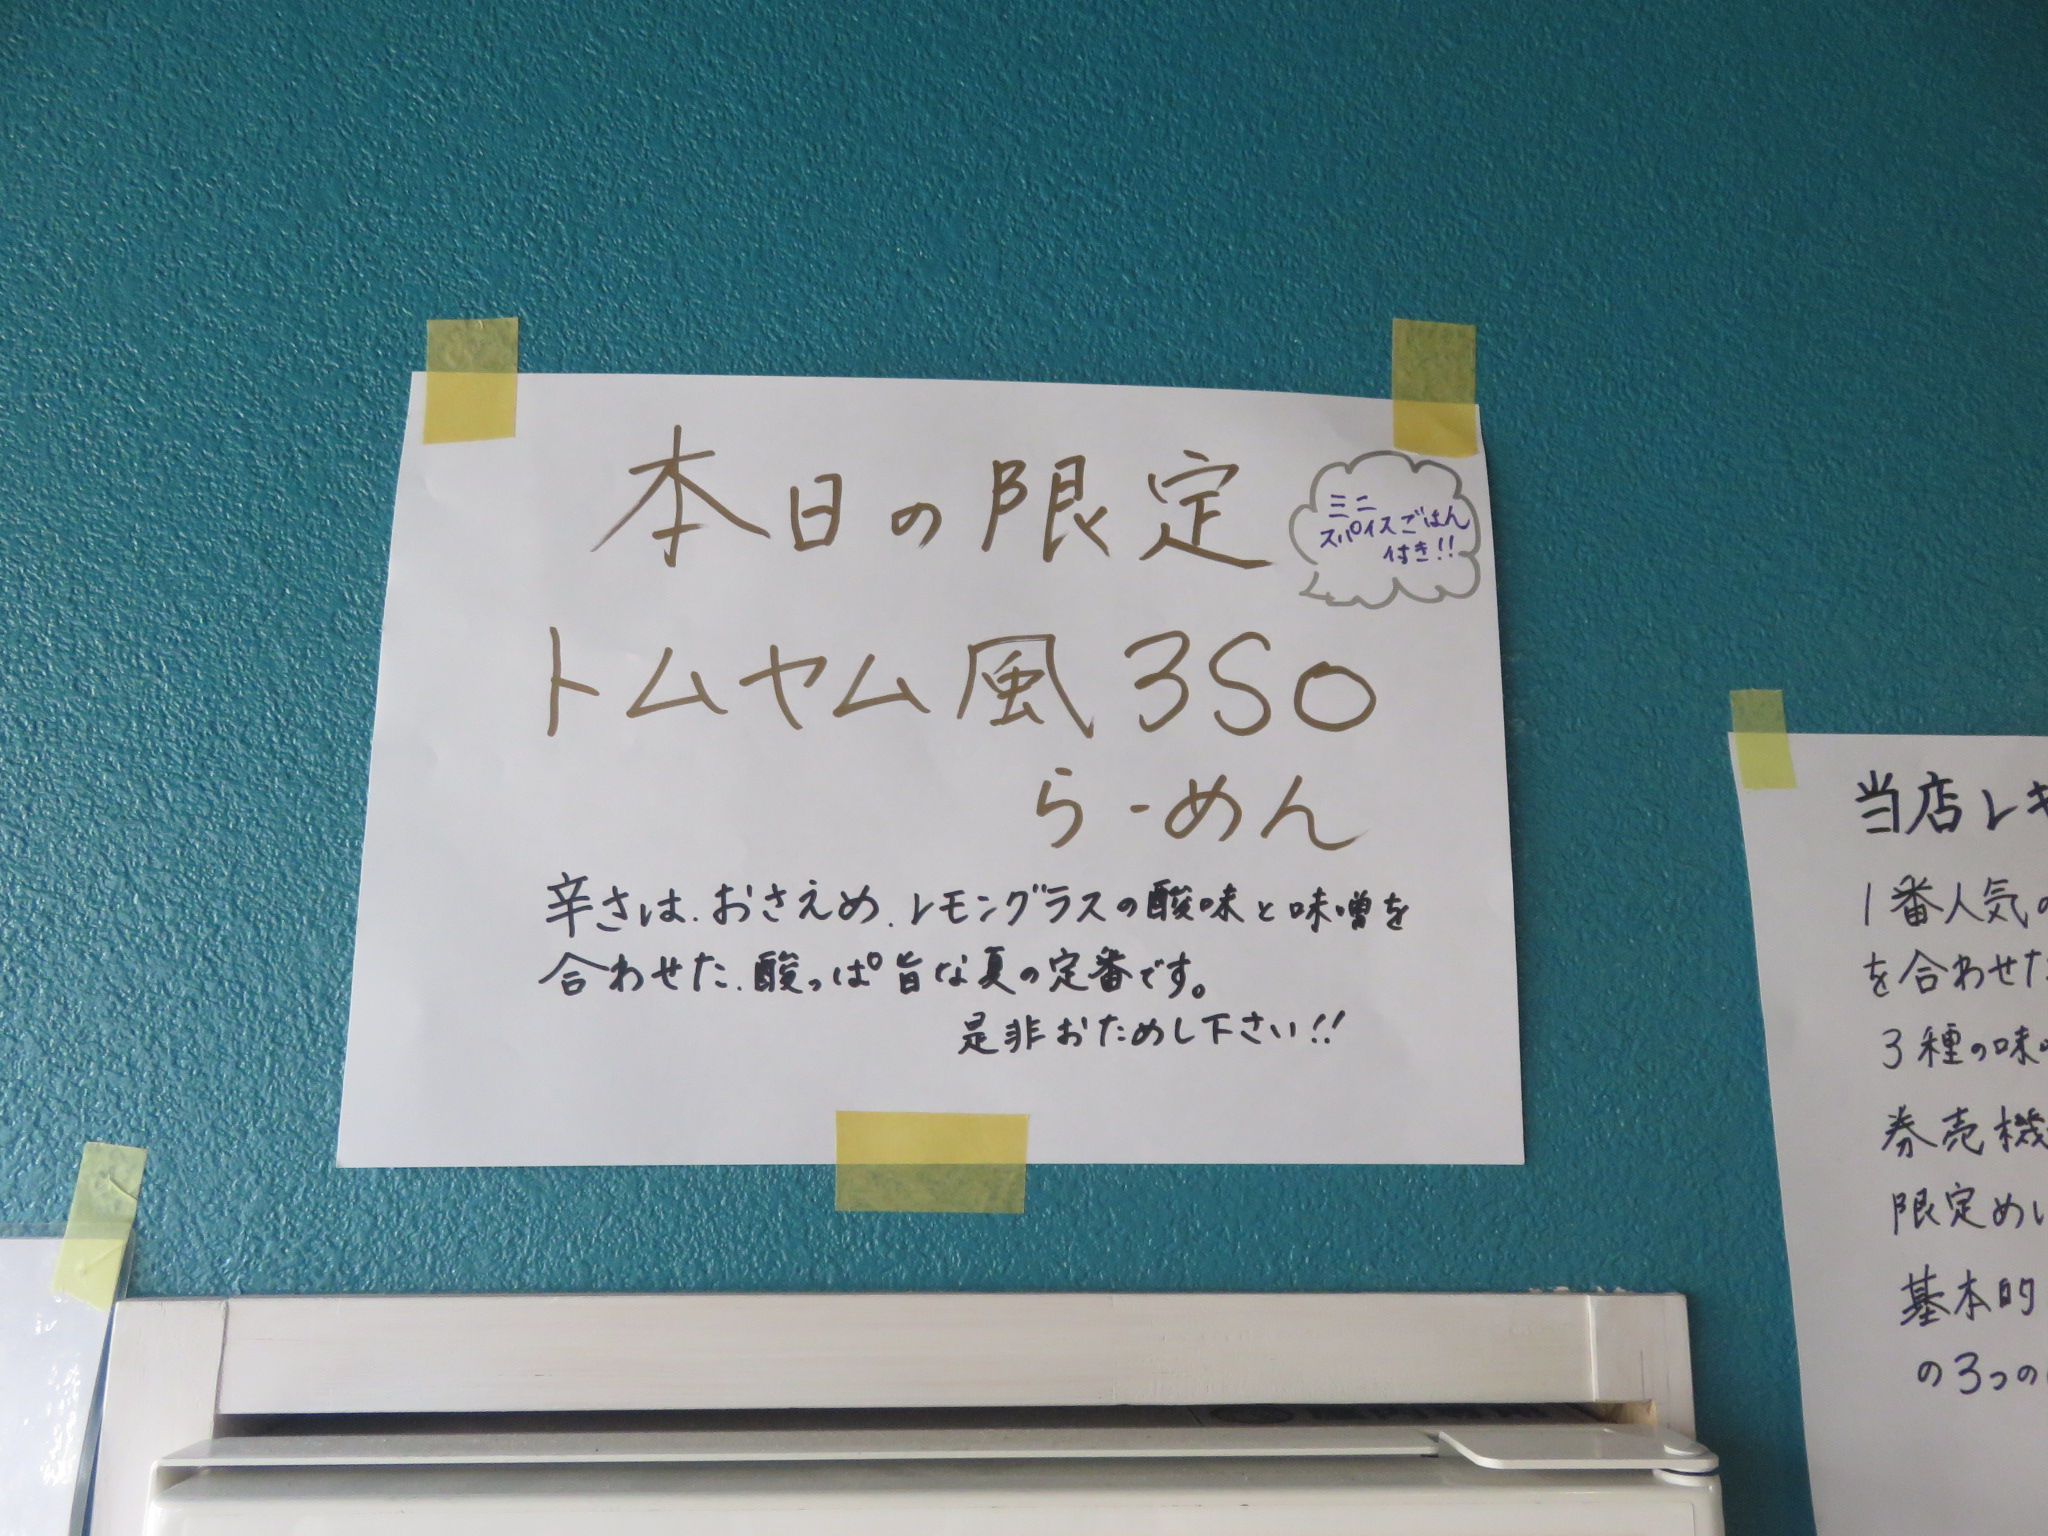 本日の限定
ミニ
スパイスごはん
付き!!
トムヤム風3SO
らーめん
辛さは、おさえめ、レモングラスの酸味と味噌を
合わせた、酸っぱ旨な夏の定番です。
是非おためし下さい!!
当店レギ
1番人気の
を合わせた
3種の味噌
券売機
限定めい
基本的
の3つの